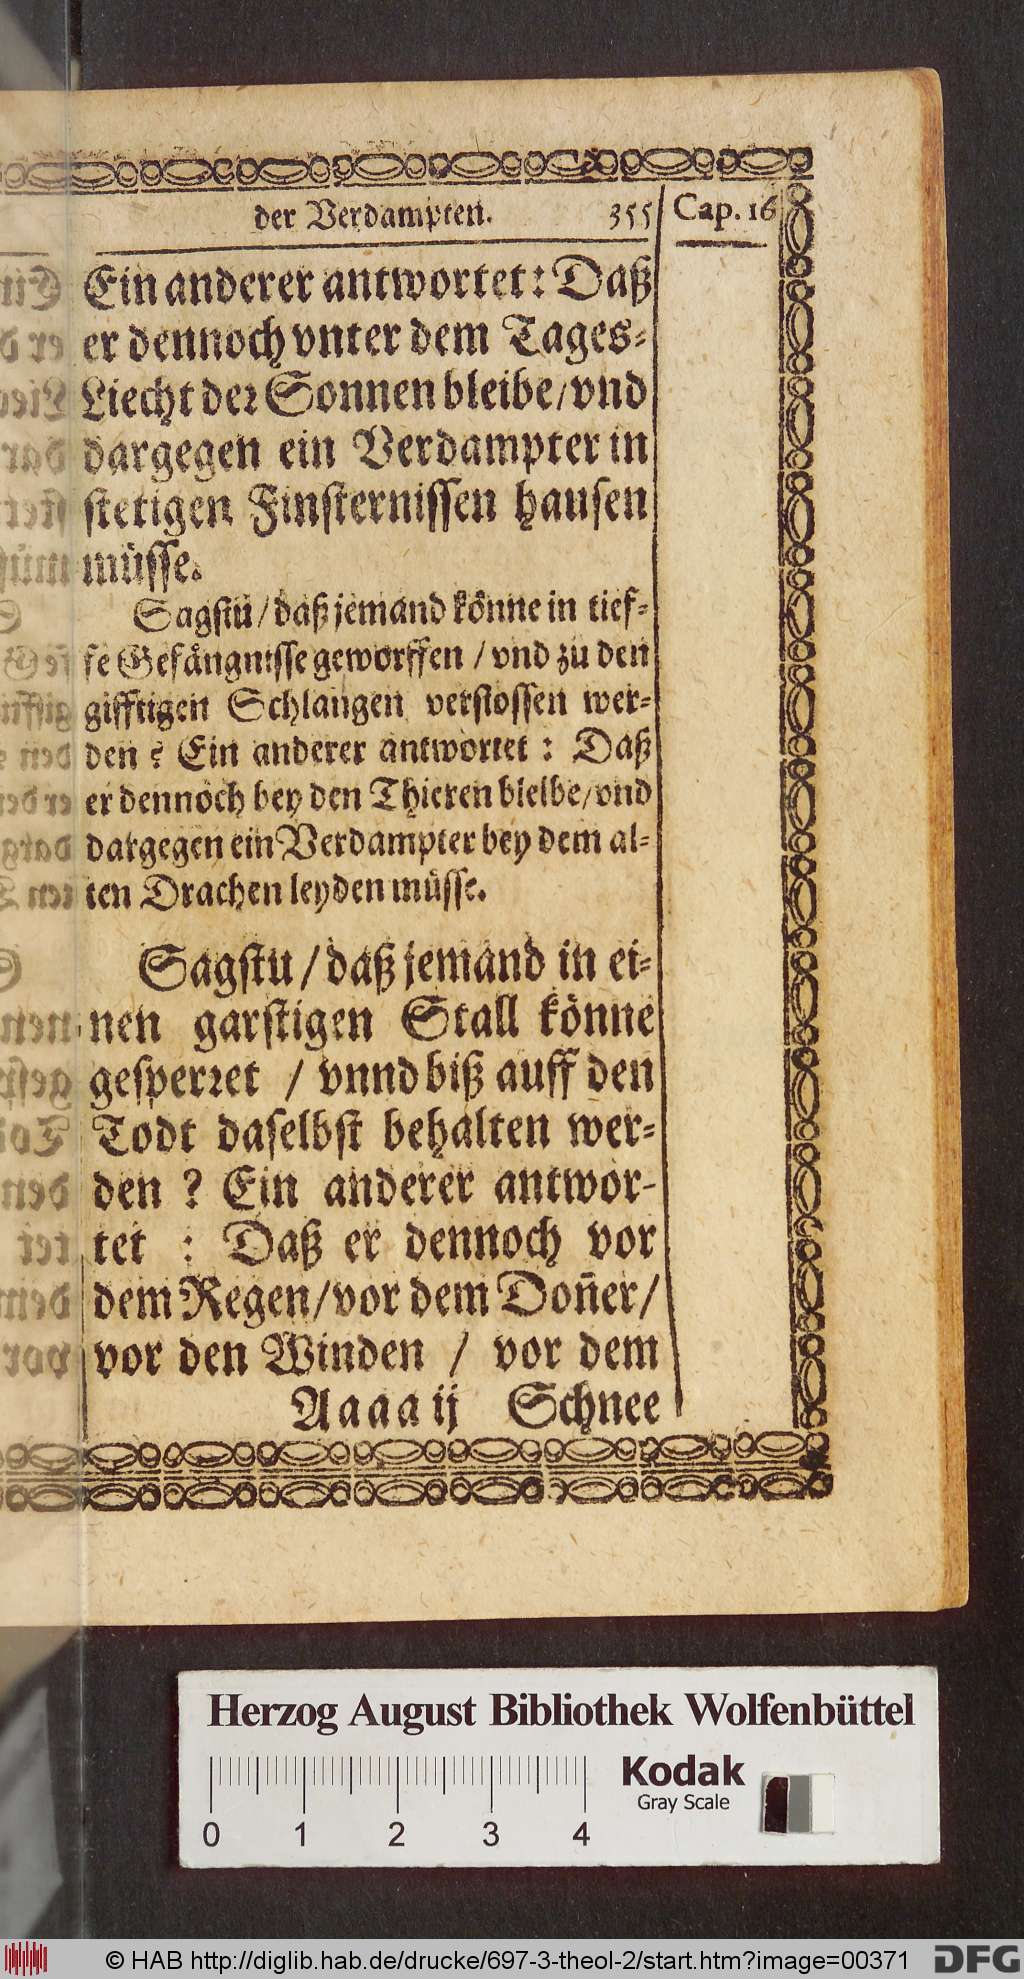 der Verdampten. 355 Cap. 16
Ein anderer antwortet: Daß
er dennoch vnter dem Tages-
Liecht der Sonnen bleibe/vnd
dargegen ein Verdampter in
stetigen Finsternissen hausen
müsse.
Sagstu/daß jemand könne in tief-
fe Gefängnisse geworffen/vnd zu den
gifftigen Schlangen verstossen wer-
den? Ein anderer antwortet: Daß
er dennoch bey den Thieren bleibe/vnd
dargegen ein Verdampter bey dem al-
ten Drachen leyden müsse.
Sagstu/daß jemand in ei-
nen garstigen Stall könne
gesperret/vnnd biß auff den
Todt daselbst behalten wer-
den? Ein anderer antwor-
tet: Daß er dennoch vor
dem Regen/vor dem Don̄er/
vor den Winden/vor dem
Aaaa ij Schnee
Herzog August Bibliothek Wolfenbüttel
Kodak
Gray Scale
0 1 2 3 4
© HAB http://diglib.hab.de/drucke/697-3-theol-2/start.htm?image=00371 DFG